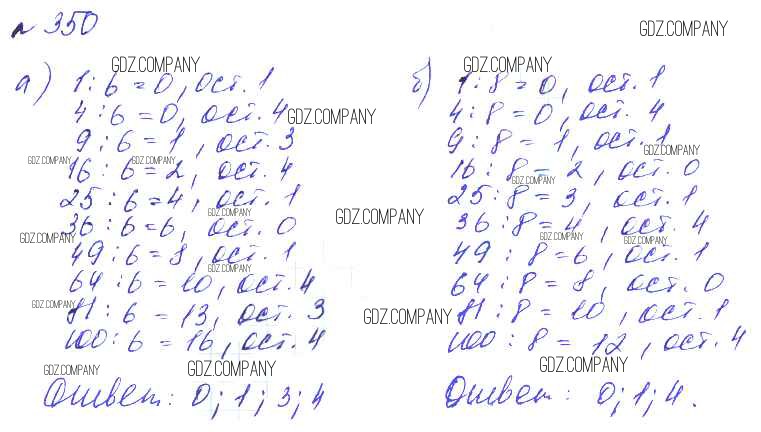 № 350
GDZ.COMPANY
GDZ.COMPANY
а) 1 : 6 = 0, ост. 1
4 : 6 = 0, ост. 4
GDZ.COMPANY
9 : 6 = 1, ост. 3
GDZ.COMPANY GDZ.COMPANY
16 : 6 = 2, ост. 4
25 : 6 = 4, ост. 1
GDZ.COMPANY
36 : 6 = 6, ост. 0
GDZ.COMPANY
49 : 6 = 8, ост. 1
GDZ.COMPANY
64 : 6 = 10, ост. 4
GDZ.COMPANY
81 : 6 = 13, ост. 3
100 : 6 = 16, ост. 4
GDZ.COMPANY GDZ.COMPANY
Ответ: 0; 1; 3; 4
GDZ.COMPANY
б) 1 : 8 = 0, ост. 1
4 : 8 = 0, ост. 4
9 : 8 = 1, ост. 1
GDZ.COMPANY
16 : 8 = 2, ост. 0
GDZ.COMPANY
25 : 8 = 3, ост. 1
GDZ.COMPANY
36 : 8 = 4, ост. 4
GDZ.COMPANY GDZ.COMPANY
49 : 8 = 6, ост. 1
64 : 8 = 8, ост. 0
GDZ.COMPANY
81 : 8 = 10, ост. 1
100 : 8 = 12, ост. 4
GDZ.COMPANY
Ответ: 0; 1; 4.